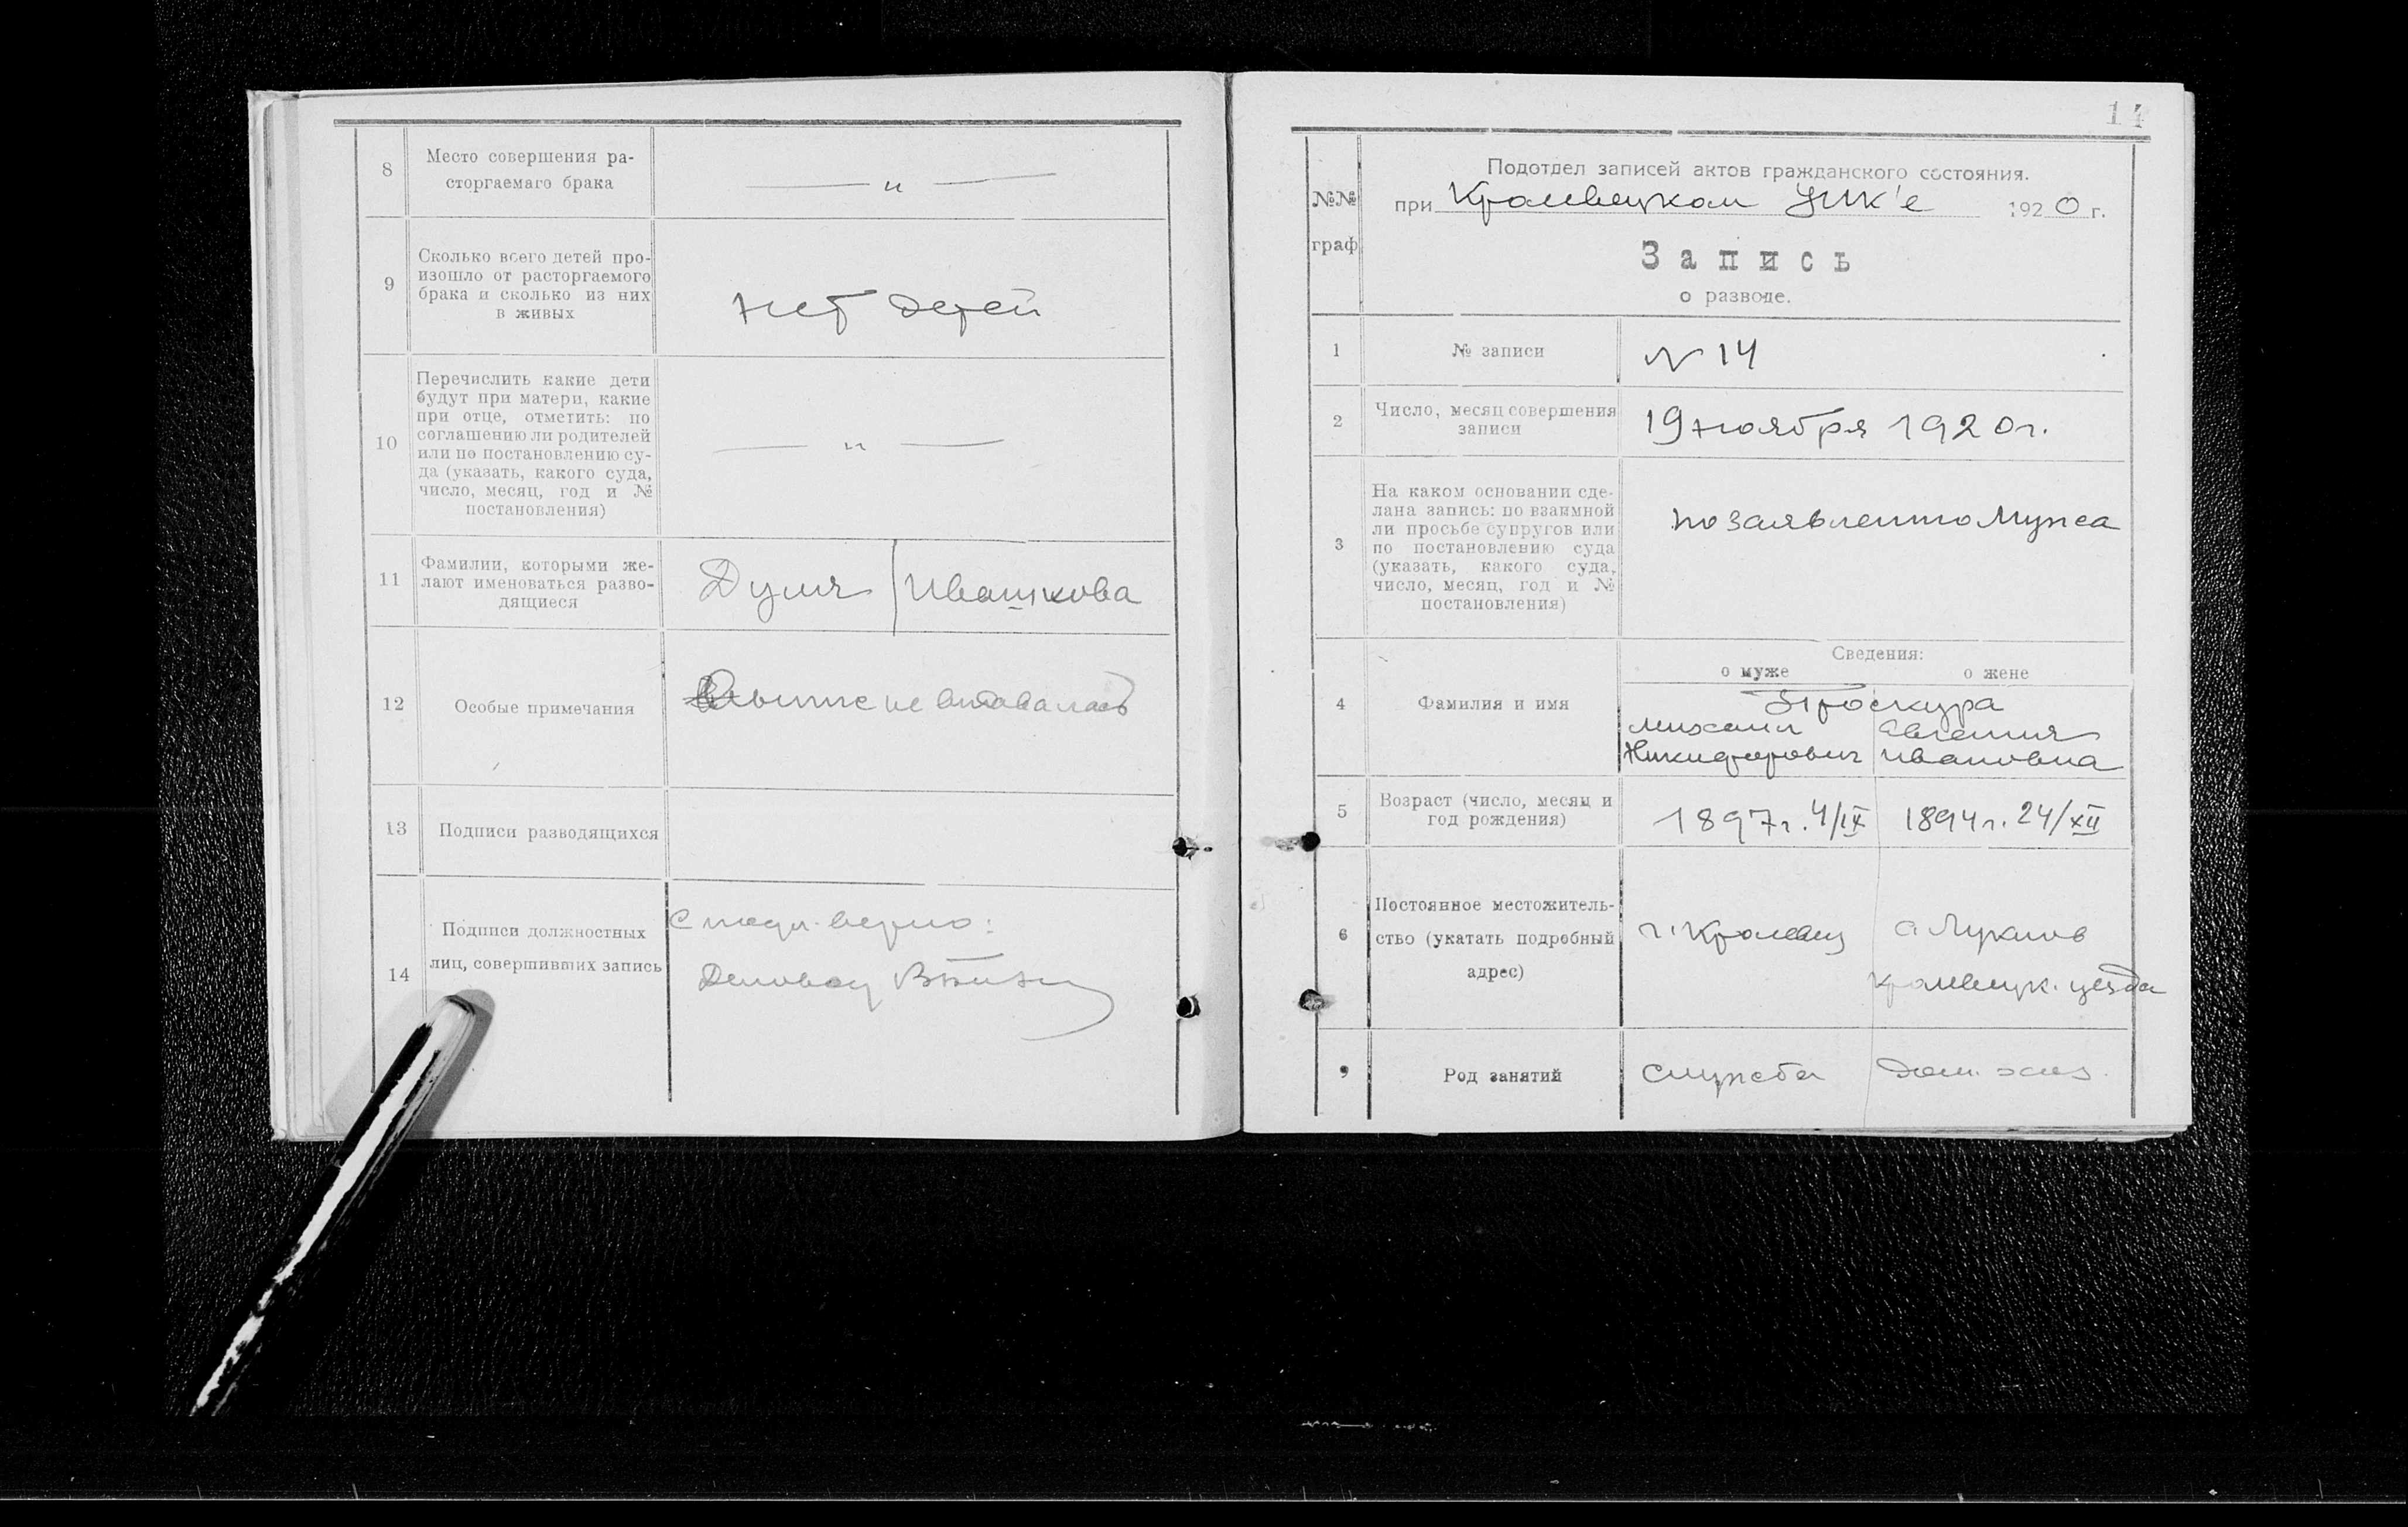 8
Место совершения ра-
сторгаемаго брака
— „ —
9
Сколько всего детей про-
изошло от расторгаемого
брака и сколько из них
в живых
нет детей
10
Перечислить какие дети
будут при матери, какие
при отце, отметить: по
соглашению ли родителей
или по постановлению су-
да (указать, какого суда,
число, месяц, год и №
постановления)
— „ —
11
Фамилии, которыми же-
лают именоваться разво-
дящиеся
Ивашкова
12
Особые примечания
не выдавалась
13
Подписи разводящихся
14
Подписи должностных
лиц, совершивших запись
С подл. верно:
14
№№
граф
Подотдел записей актов гражданского состояния.
при Кролевецком УИК'е 1920 г.
Запись
о разводе.
1
№ записи
№ 14
2
Число, месяц совершения
записи
19 ноября 1920 г.
3
На каком основании сде-
лана запись: по взаимной
ли просьбе супругов или
по постановлению суда
(указать, какого суда,
число, месяц, год и №
постановления)
по заявлению мужа
4
Фамилия и имя
Сведения:
о муже
о жене
Проскура
Михаил
Никифорович
Евгения
Ивановна
5
Возраст (число, месяц и
год рождения)
1897 г. 4/IX
1894 г. 24/XII
6
Постоянное местожитель-
ство (укатать подробный
адрес)
г. Кролевец
с.
Кролевецк. уезда
Род занятий
служба
дом. хоз.